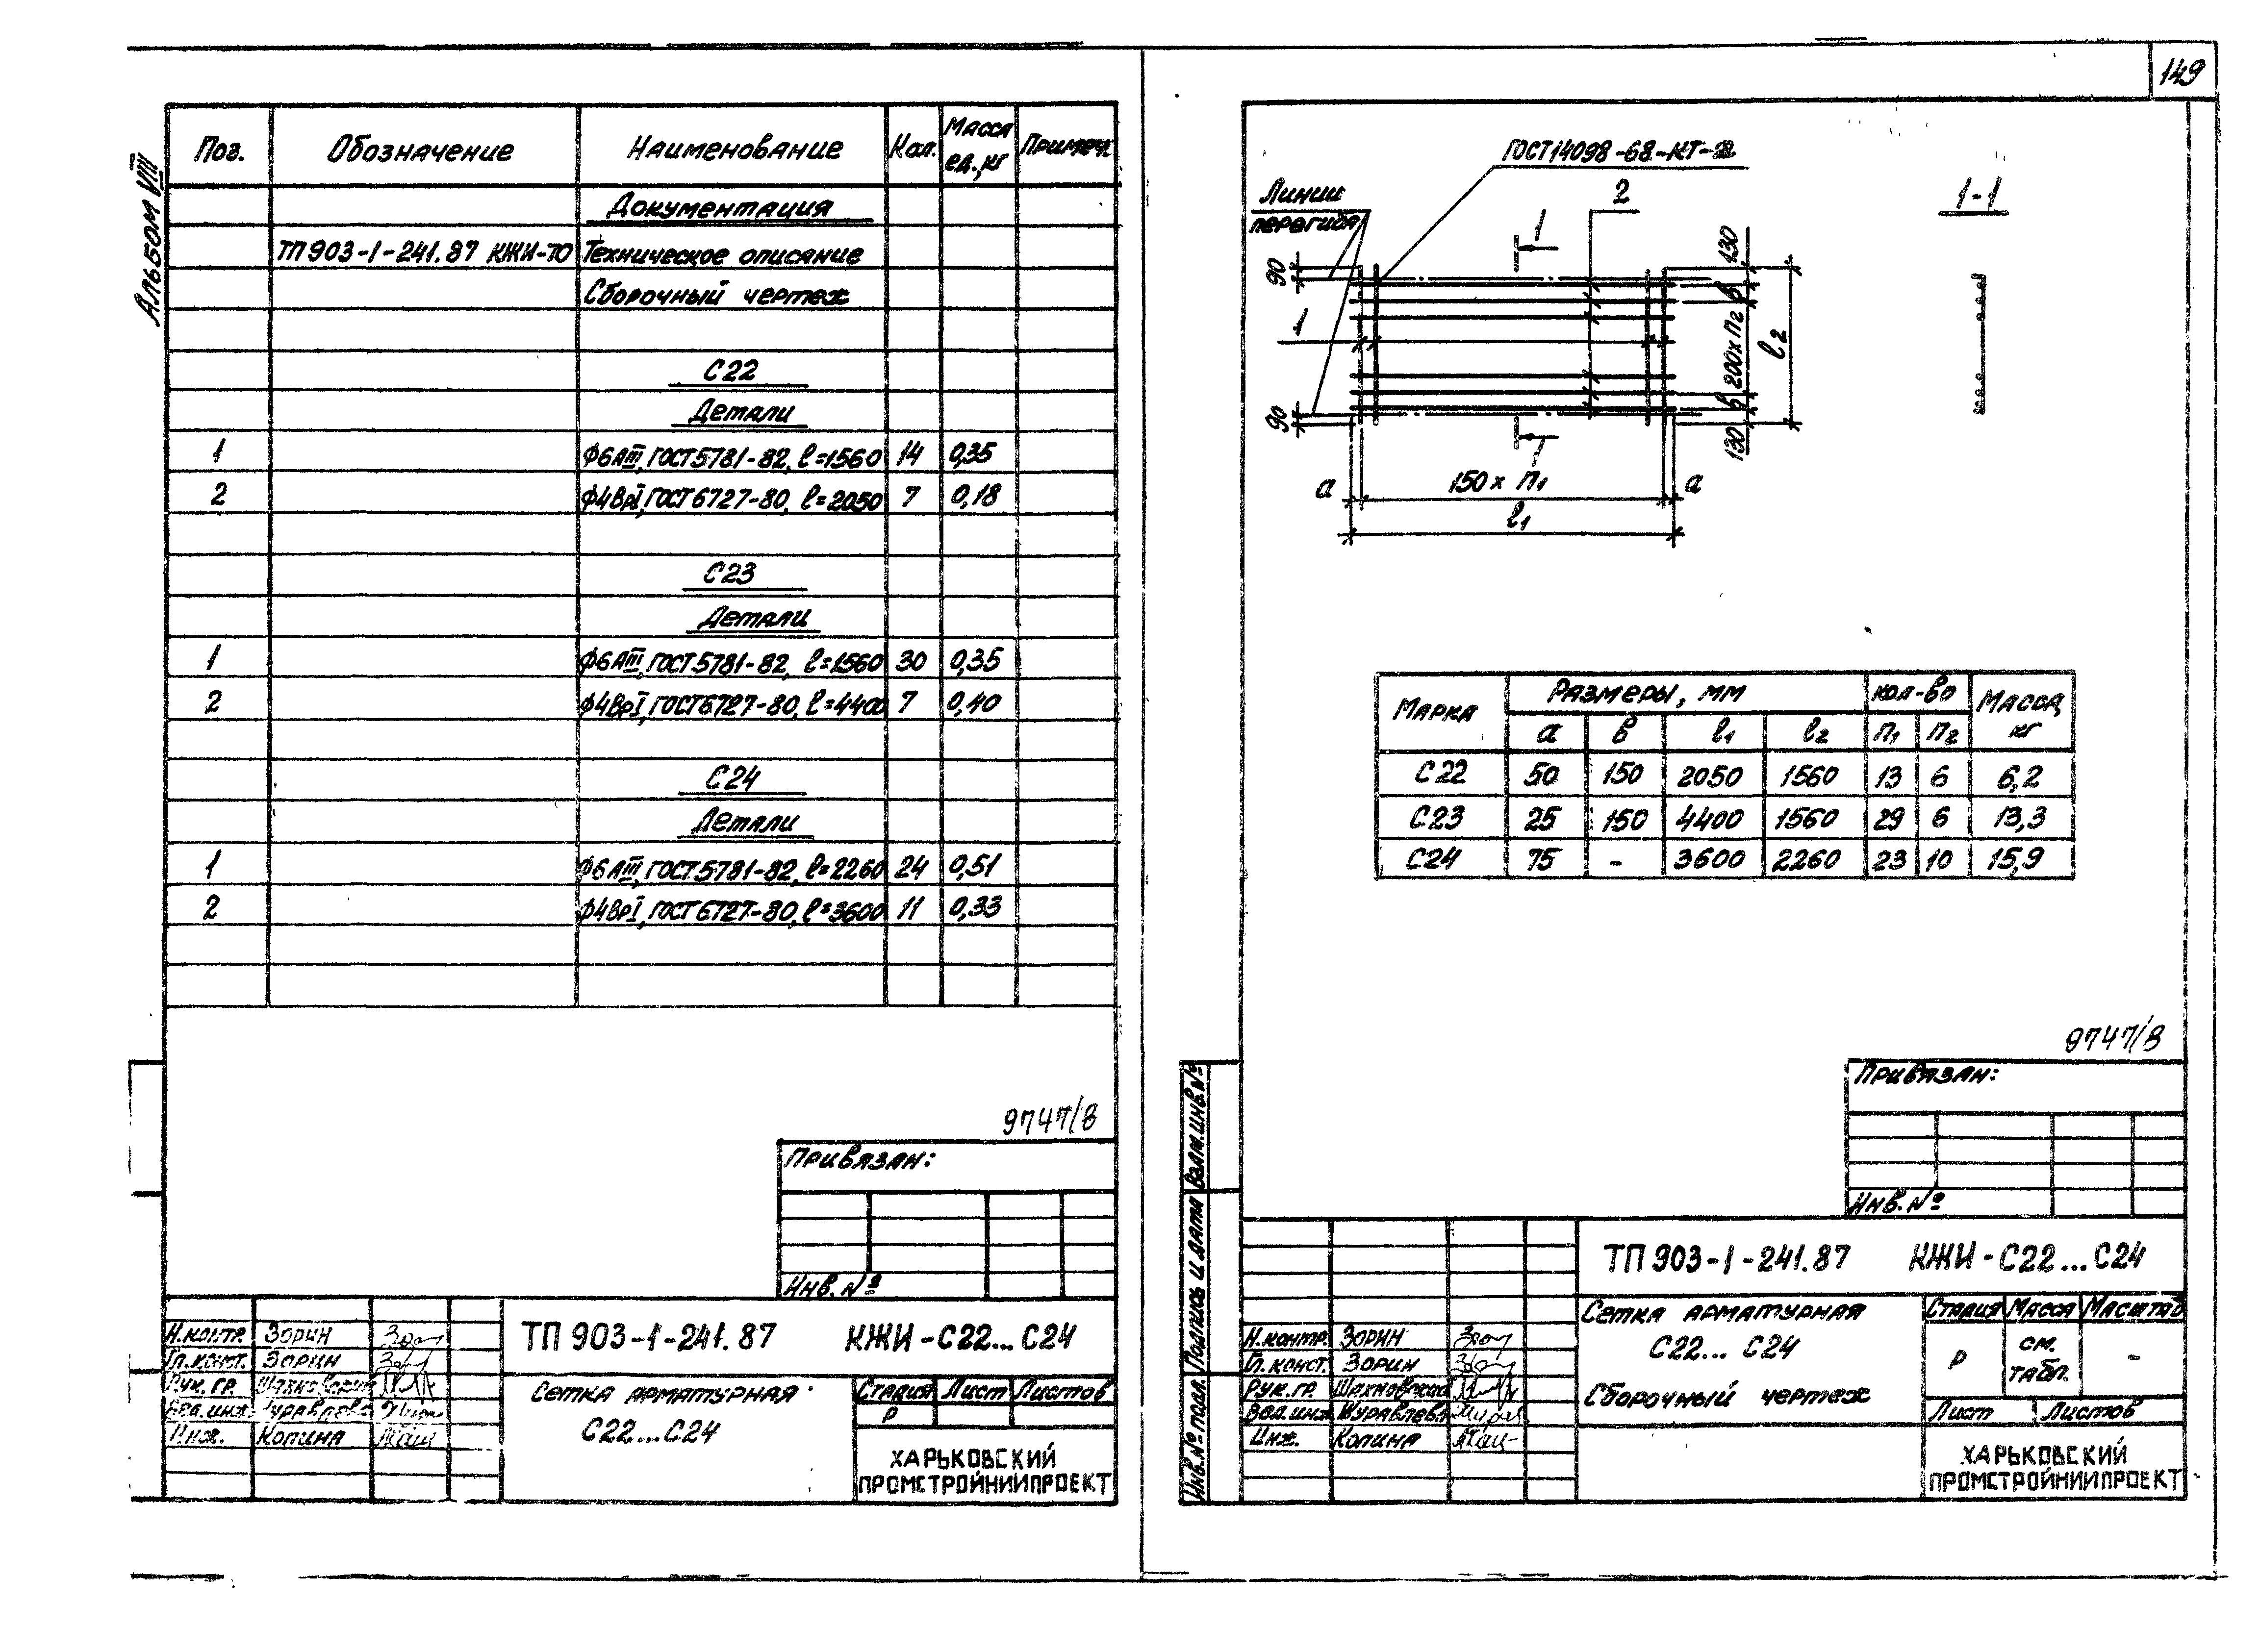 149
Альбом VIII
Поз. Обозначение Наименование Кол. Масса ед., кг Примеч.
Документация
ТП 903-1-241.87 КЖИ-ТО Техническое описание
Сборочный чертеж
С22
Детали
1 Ф6АIII, ГОСТ 5781-82, ℓ=1560 14 0,35
2 Ф4ВрI, ГОСТ 6727-80, ℓ=2050 7 0,18
С23
Детали
1 Ф6АIII, ГОСТ 5781-82, ℓ=1560 30 0,35
2 Ф4ВрI, ГОСТ 6727-80, ℓ=4400 7 0,40
С24
Детали
1 Ф6АIII, ГОСТ 5781-82, ℓ=2260 24 0,51
2 Ф4ВрI, ГОСТ 6727-80, ℓ=3600 11 0,33
9747/8
Привязан:
Инв. №
Н.контр. Зорин
Гл. конст. Зорин
Рук. гр. Шахновский
Вед. инж. Журавлева
Инж. Копина
ТП 903-1-241.87 КЖИ-С22...С24
Сетка арматурная
С22...С24
Стадия Лист Листов
Р
ХАРЬКОВСКИЙ
ПРОМСТРОЙНИИПРОЕКТ
ГОСТ 14098-68-КТ-2
Линии
перегиба
2
1
1-1
90
130
в
1
200х п2
ℓ2
в
90
130
1
а
150 х п1
а
ℓ1
Марка Размеры, мм кол-во Масса, кг
а в ℓ1 ℓ2 п1 п2
С22 50 150 2050 1560 13 6 6,2
С23 25 150 4400 1560 29 6 13,3
С24 75 - 3600 2260 23 10 15,9
9747/8
Привязан:
Инв. №
Взам. инв. №
Подпись и дата
Инв. № подл.
Н.контр. Зорин
Гл. конст. Зорин
Рук. гр. Шахновский
Вед. инж. Журавлева
Инж. Копина
ТП 903-1-241.87 КЖИ-С22...С24
Сетка арматурная
С22...С24
Сборочный чертеж
Стадия Масса Масштаб
Р см. табл. -
Лист Листов
ХАРЬКОВСКИЙ
ПРОМСТРОЙНИИПРОЕКТ